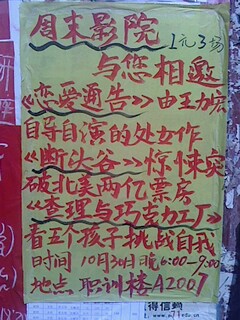 周末影院
1元3场
与您相邀
《恋爱通告》由王力宏
自导自演的处女作
《断头谷》惊悚突
破北美两亿票房
《查理与巧克力工厂》
看五个孩子挑战自我
时间 10月30日晚6:00-9:00
地点:职训楼A2007
得信网